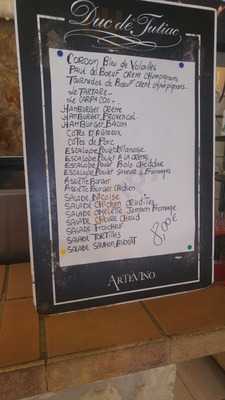 Duc de Juliac
Cordon Bleu de Volailles
Pavé du Boeuf crème champignons
Tournedos de Boeuf crème champignons.
Le TARTARE
Le CARPACCIO
HAMBURGER CRÈME
HAMBURGER PROVENCAL
HAMBURGER BACON
CÔTES D'AGNEAUX
CÔTES de PORC
ESCALOPE POULET Milanaise
ESCALOPE POULET A LA CRÈME
ESCALOPE POULET Bleu cheddar
ESCALOPE POULET Saveur Fromages
ASSIETTE BURGER
ASSIETTE BURGER CHICKEN
SALADE NICOISE
SALADE CHICKEN CRUDITES
SALADE OMELETTE JAMBON FROMAGE
SALADE CHEVRE CHAUD
SALADE FRAICHEUR
SALADE TORTILLES
SALADE SAUMON AVOCAT
8.00€
ARTEVINO